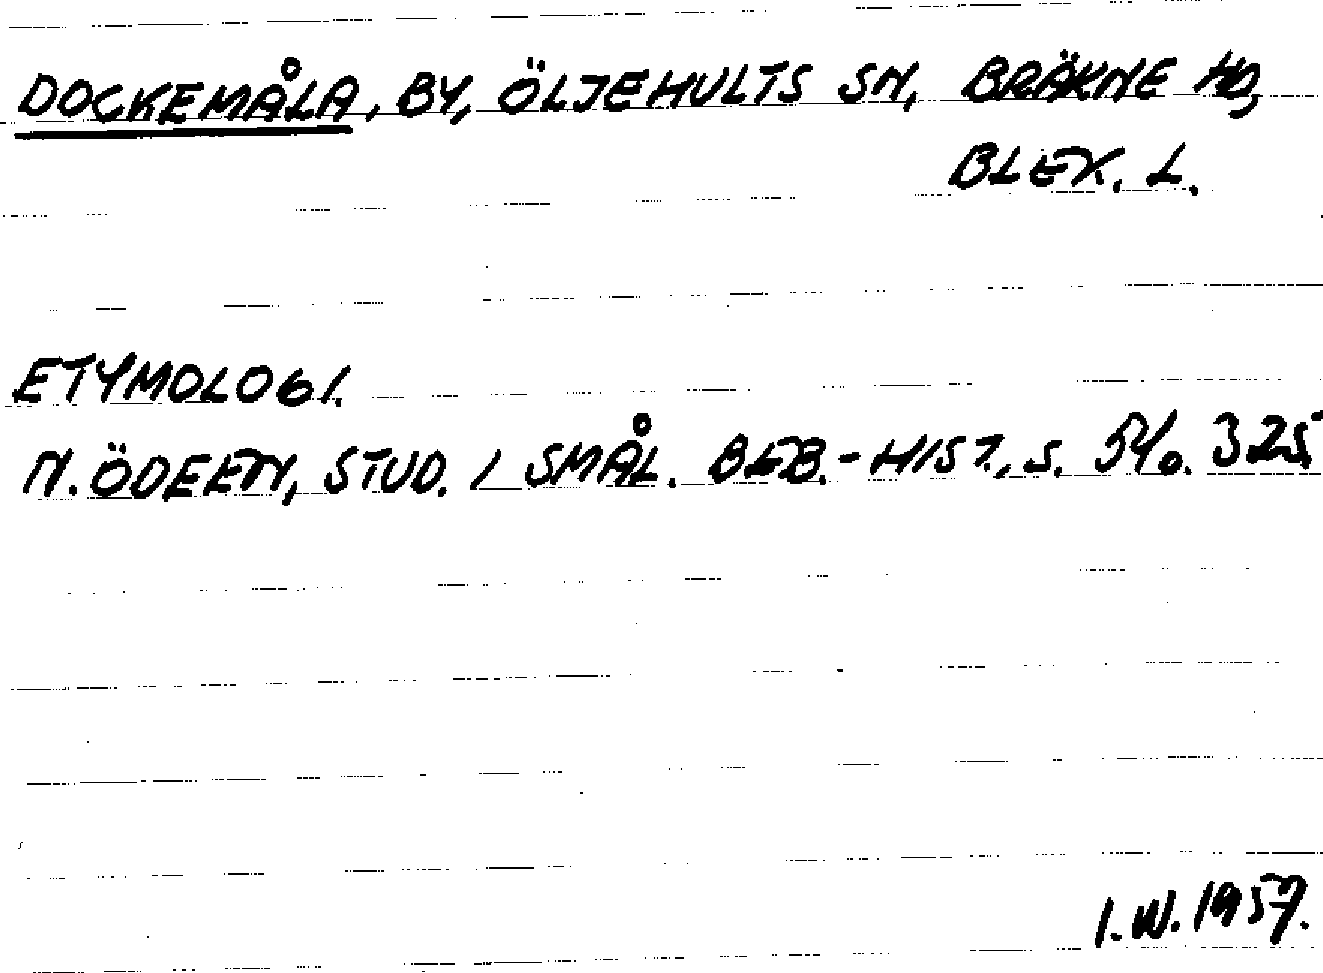 DOCKEMÅLA, BY, ÖLJEHULTS SN, BRÄKNE HD,
BLEK. L.
ETYMOLOGI.
N. ÖDEEN, STUD. I SMÅL. BEB.-HIST., S. 325
I.W. 1957.